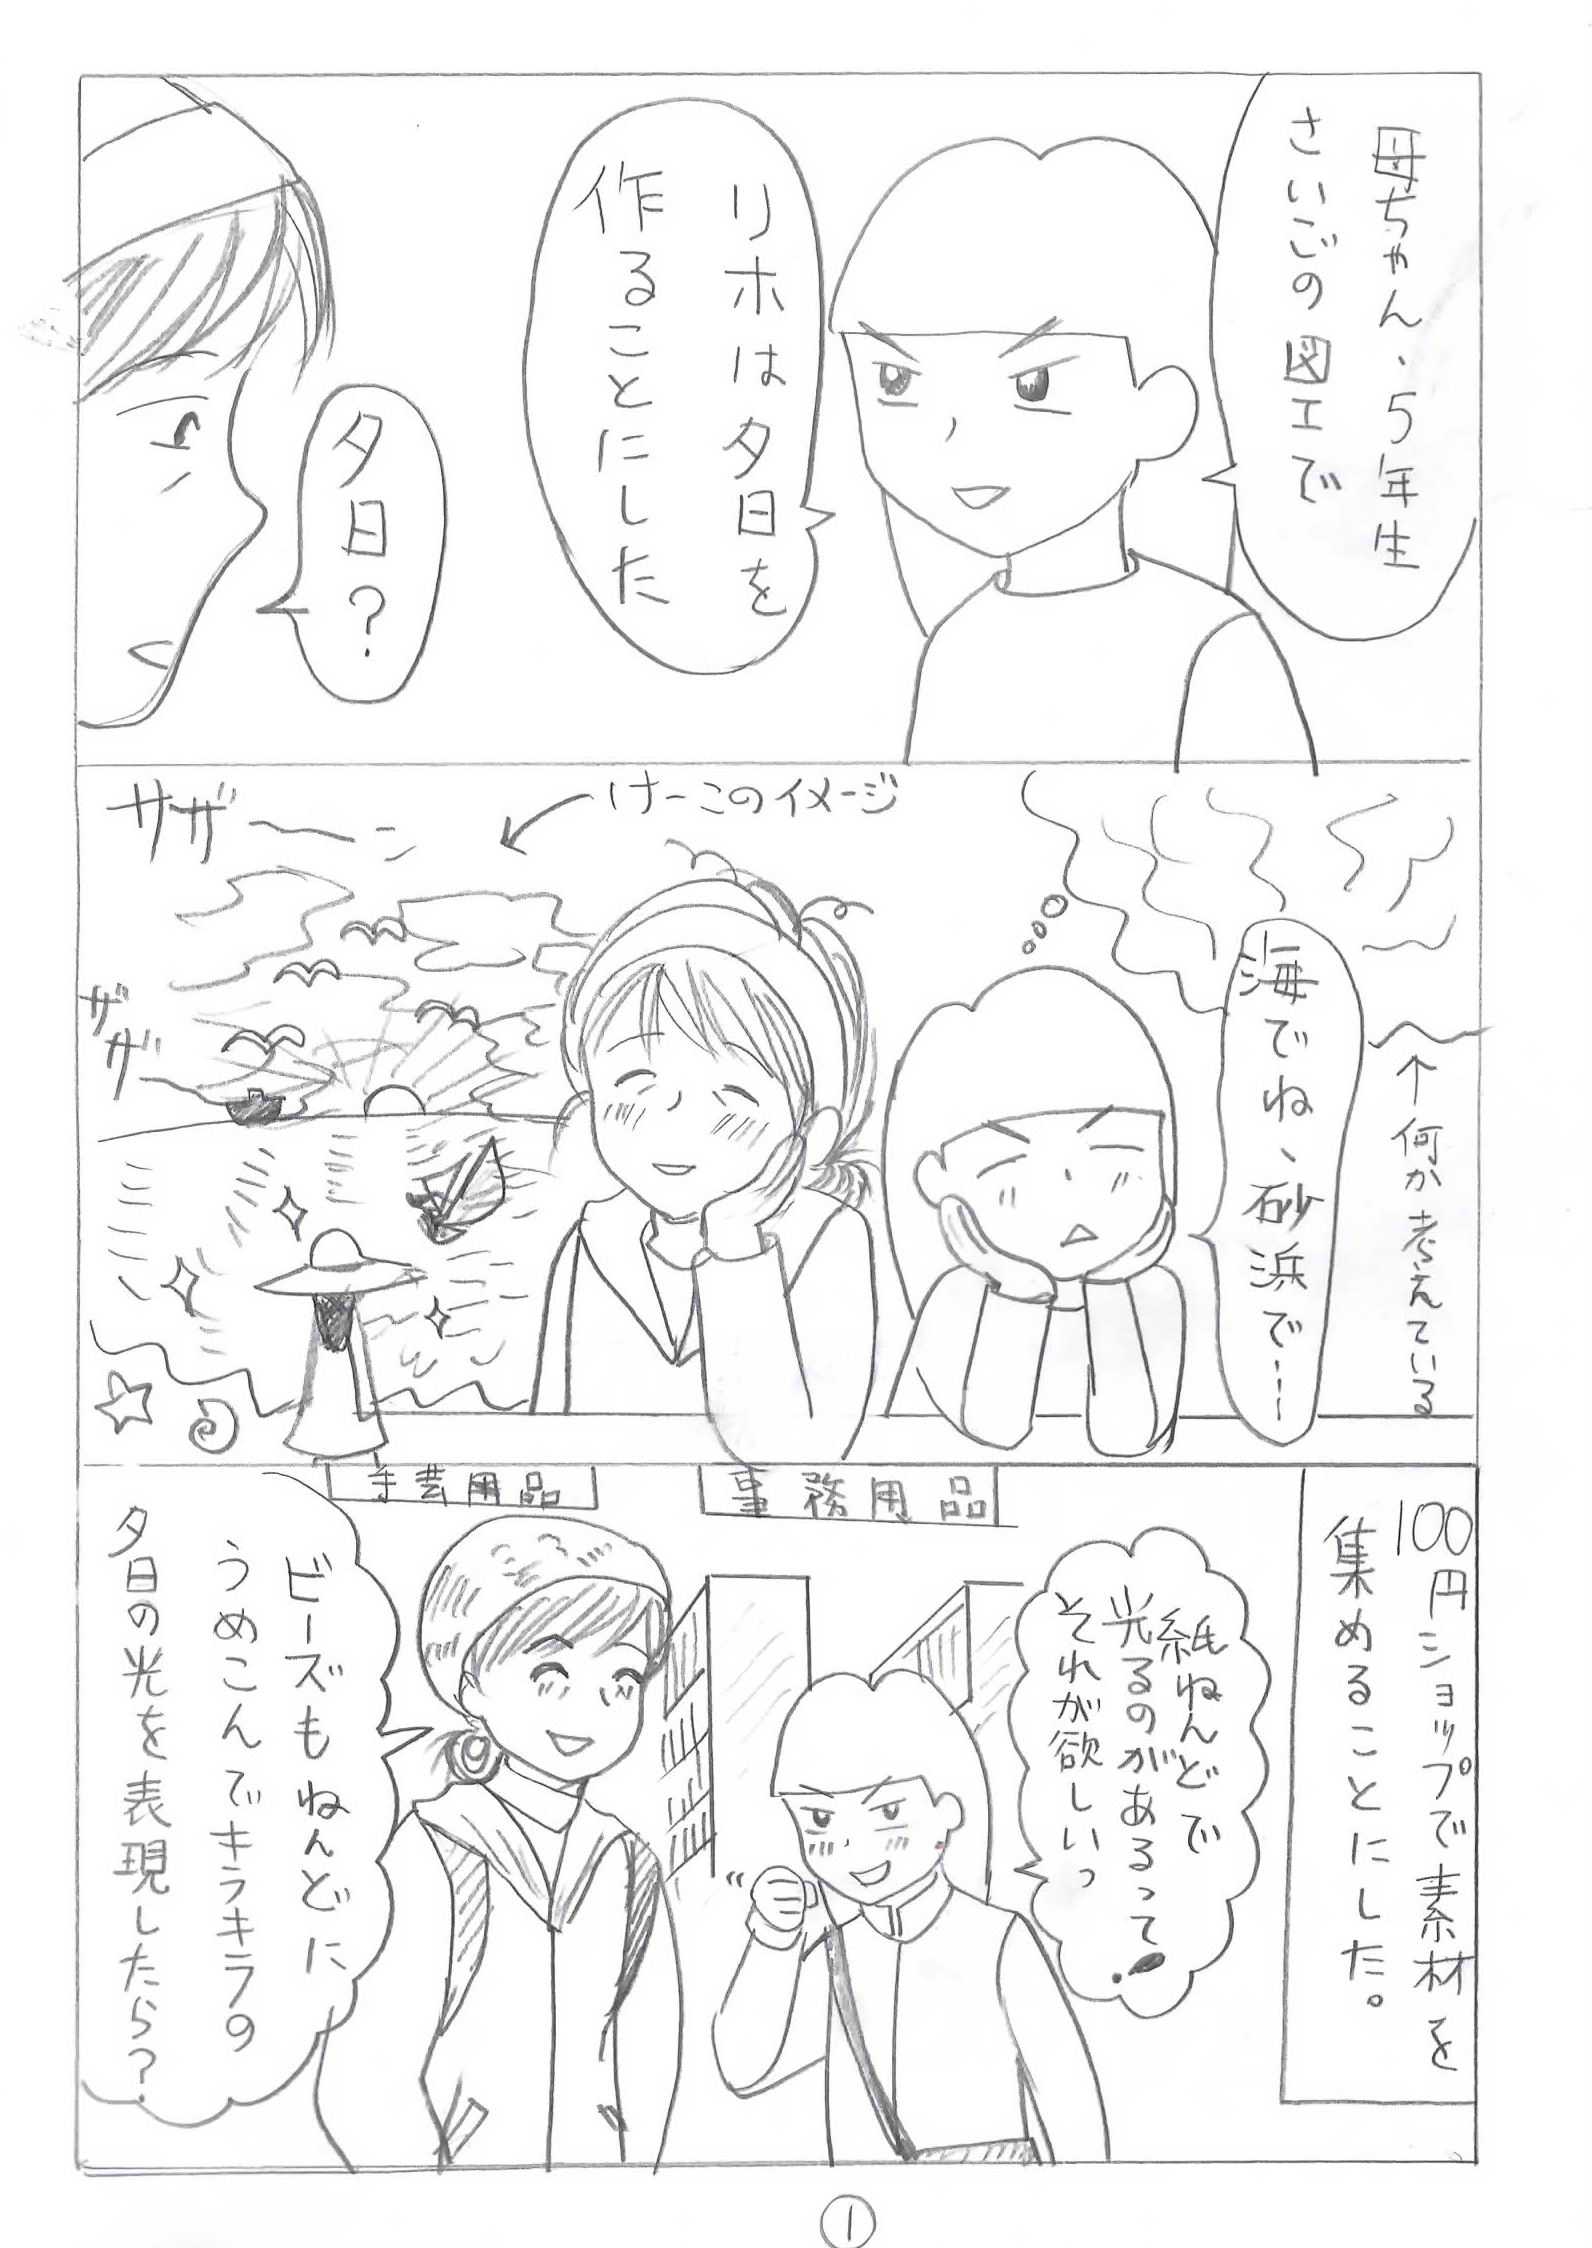 母ちゃん、5年生
さいごの図工で
リホは夕日を
作ることにした
夕日?
何か考えている
海でね、砂浜で…
けーこのイメージ
ザザーン
ザザ
100円ショップで素材を
集めることにした。
事務用品
手芸用品
紙ねんどで
光るのがあるって
それが欲しいっ
ビーズもねんどに
うめこんでキラキラの
夕日の光を表現したら?
1